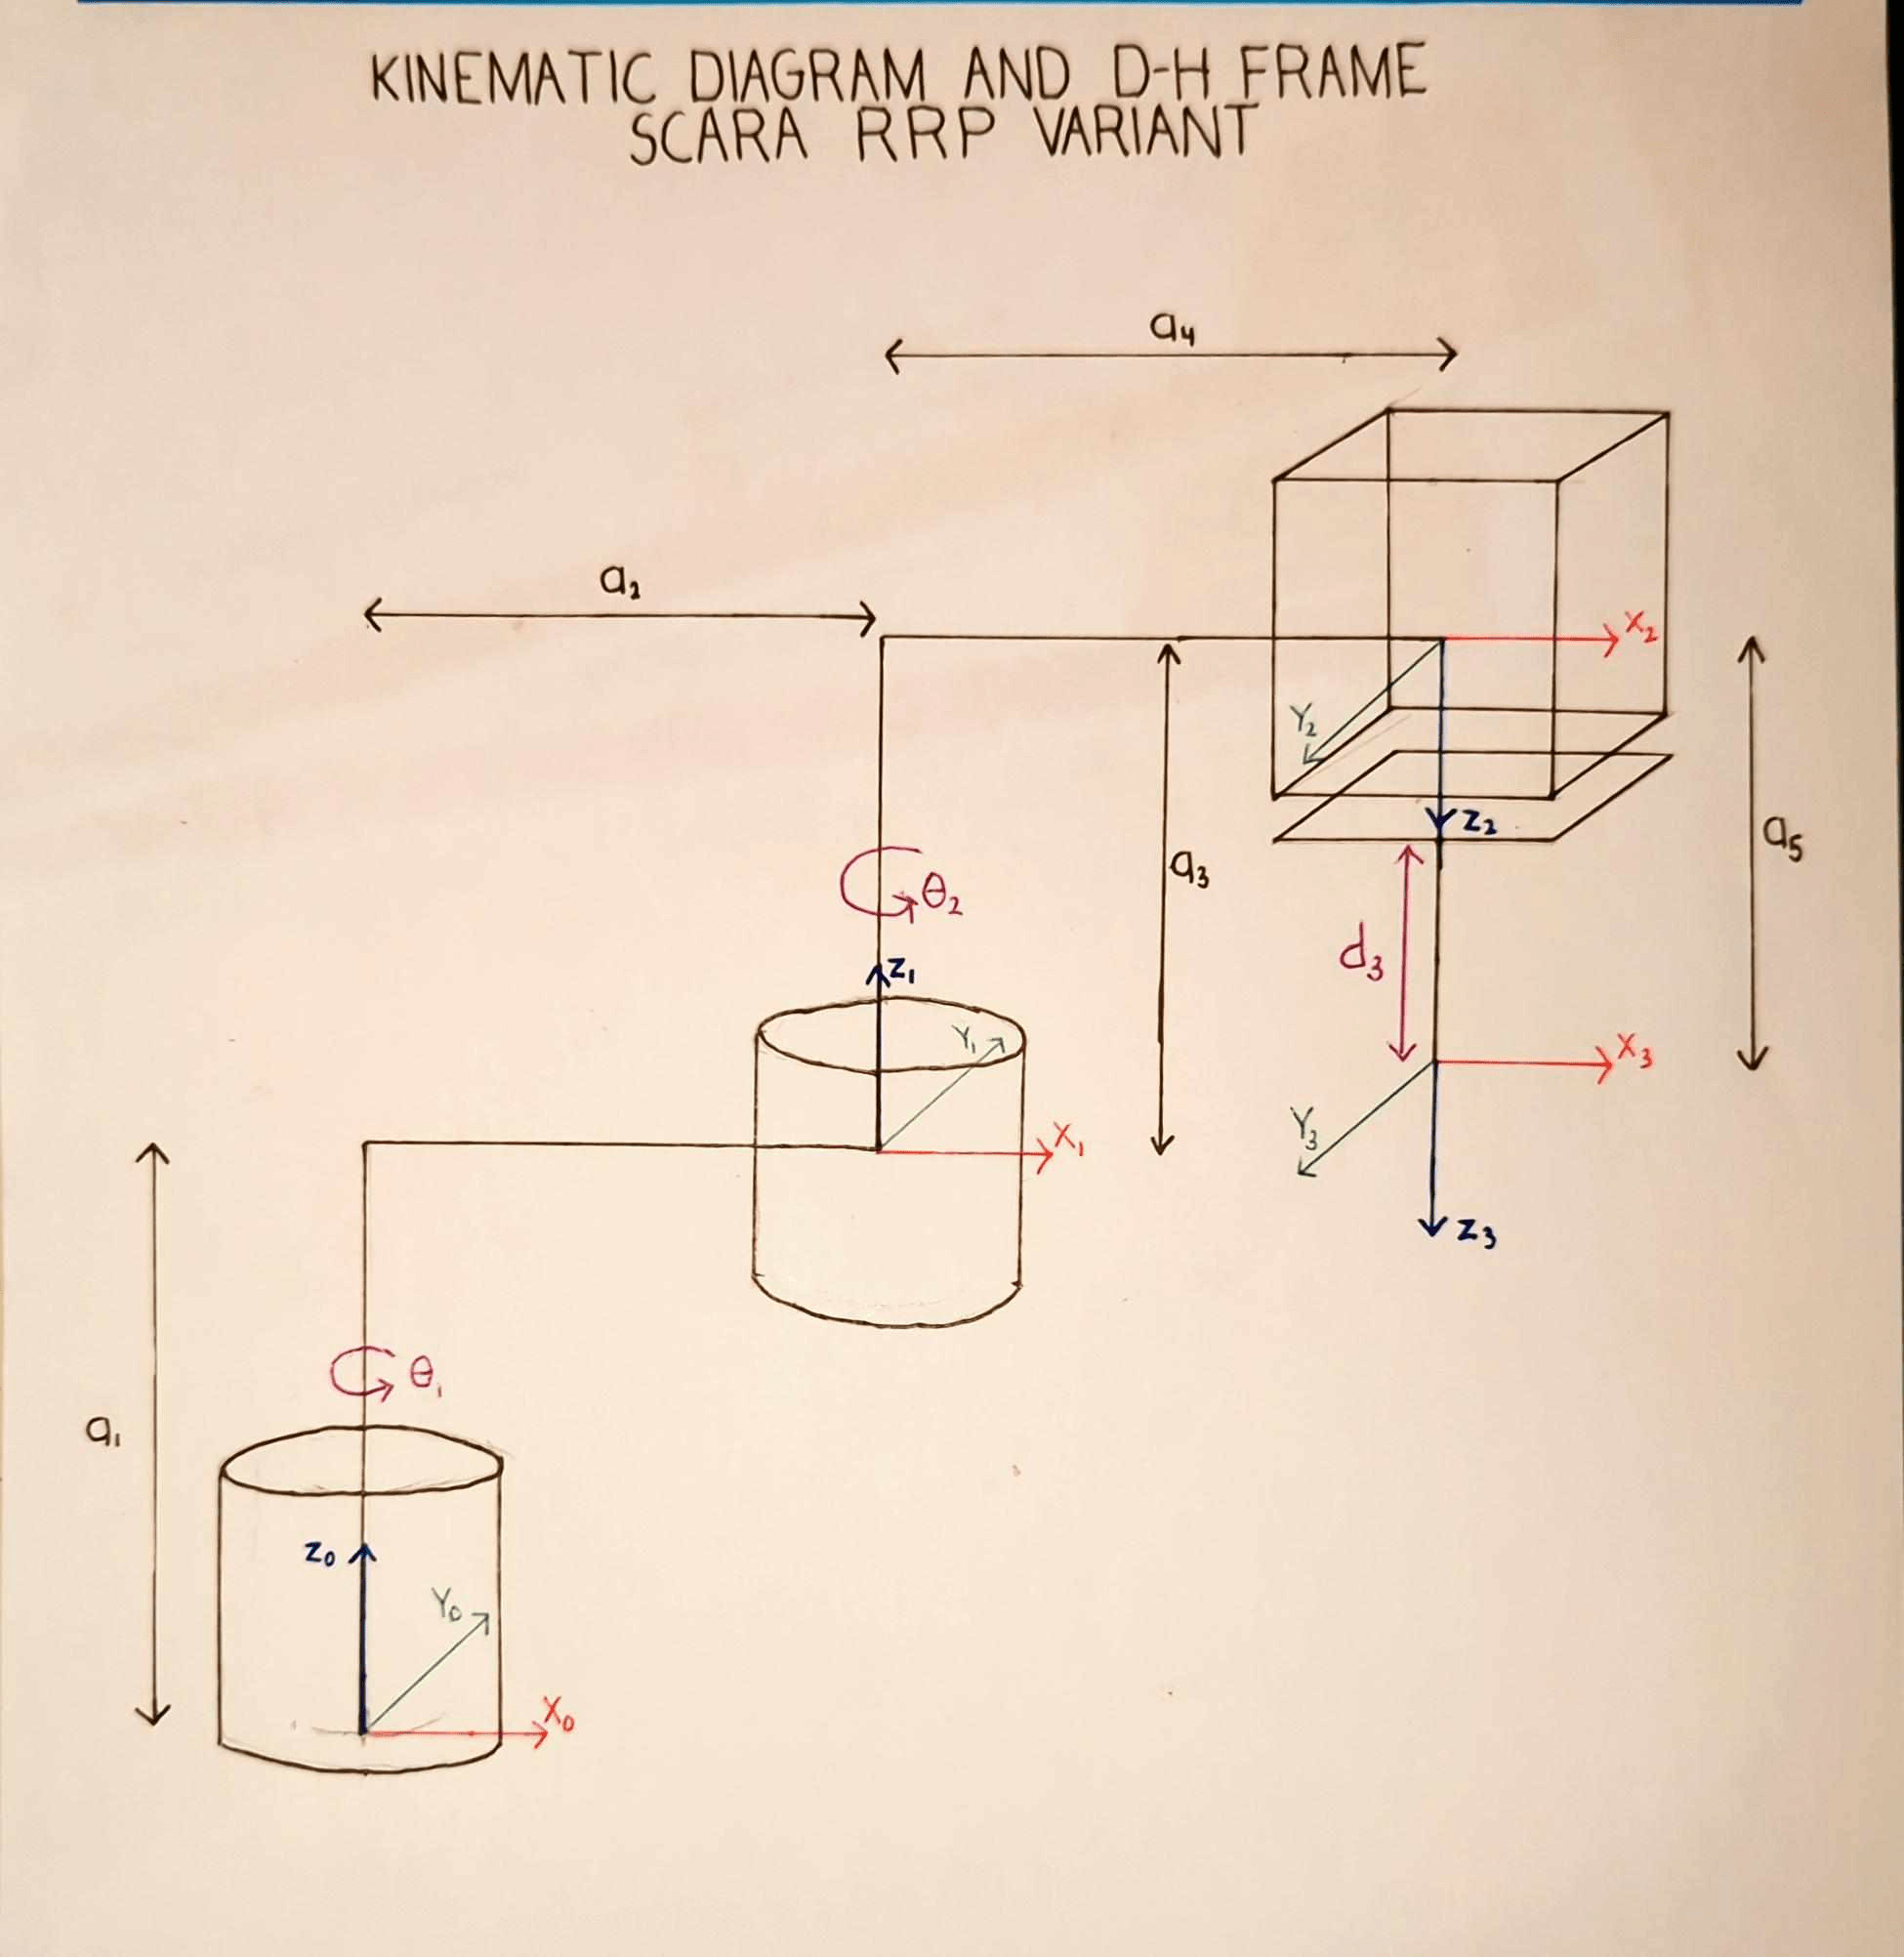 KINEMATIC DIAGRAM AND D-H FRAME
SCARA RRP VARIANT
a₄
a₂
X₂
Y₂
Z₂
a₅
a₃
θ₂
d₃
Z₁
Y₁
X₃
X₁
Y₃
Z₃
θ₁
a₁
Z₀
Y₀
X₀